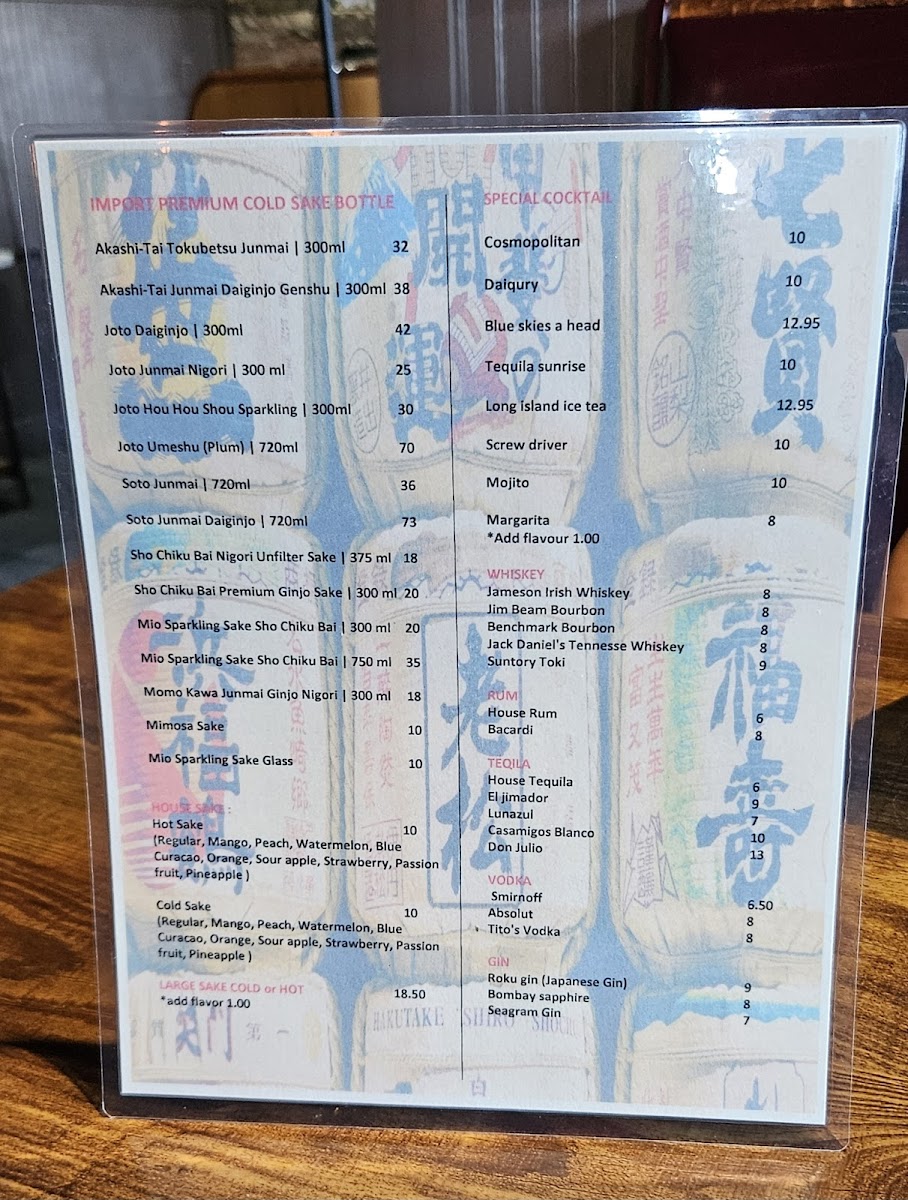 IMPORT PREMIUM COLD SAKE BOTTLE
Akashi-Tai Tokubetsu Junmai | 300ml 32
Akashi-Tai Junmai Daiginjo Genshu | 300ml 38
Joto Daiginjo | 300ml 42
Joto Junmai Nigori | 300 ml 25
Joto Hou Hou Shou Sparkling | 300ml 30
Joto Umeshu (Plum) | 720ml 70
Soto Junmai | 720ml 36
Soto Junmai Daiginjo | 720ml 73
Sho Chiku Bai Nigori Unfilter Sake | 375 ml 18
Sho Chiku Bai Premium Ginjo Sake | 300 ml 20
Mio Sparkling Sake Sho Chiku Bai | 300 ml 20
Mio Sparkling Sake Sho Chiku Bai | 750 ml 35
Momo Kawa Junmai Ginjo Nigori | 300 ml 18
Mimosa Sake 10
Mio Sparkling Sake Glass 10
HOUSE SAKE :
Hot Sake 10
(Regular, Mango, Peach, Watermelon, Blue
Curacao, Orange, Sour apple, Strawberry, Passion
fruit, Pineapple )
Cold Sake 10
(Regular, Mango, Peach, Watermelon, Blue
Curacao, Orange, Sour apple, Strawberry, Passion
fruit, Pineapple )
LARGE SAKE COLD or HOT 18.50
*add flavor 1.00
SPECIAL COCKTAIL
Cosmopolitan 10
Daiqury 10
Blue skies a head 12.95
Tequila sunrise 10
Long island ice tea 12.95
Screw driver 10
Mojito 10
Margarita 8
*Add flavour 1.00
WHISKEY
Jameson Irish Whiskey 8
Jim Beam Bourbon 8
Benchmark Bourbon 8
Jack Daniel's Tennesse Whiskey 8
Suntory Toki 9
RUM
House Rum 6
Bacardi 8
TEQILA
House Tequila 6
El jimador 9
Lunazul 7
Casamigos Blanco 10
Don Julio 13
VODKA
Smirnoff 6.50
Absolut 8
Tito's Vodka 8
GIN
Roku gin (Japanese Gin) 9
Bombay sapphire 8
Seagram Gin 7
開
七賢
福寿
老松
第一
HAKUTAKE SHIRO
白